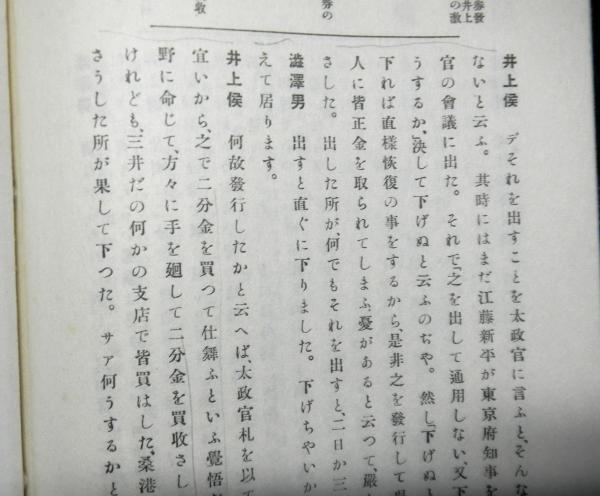 券發
井上
の激
券の
收
井上侯　デそれを出すことを太政官に言ふと、そんな
ないと云ふ。其時にはまだ江藤新平が東京府知事を
官の會議に出た。それで「之を出して通用しない、又下
うするか、決して下げぬと云ふのぢや。然し「下げぬ
下れば直樣恢復の事をするから、是非之を發行して
人に皆正金を取られてしまふ憂があると云つて、嚴
さした。出した所が、何でもそれを出すと、二日か三
澁澤男　出すと直ぐに下りました。下げちやいか
えて居ります。
井上侯　何故發行したかと云へば、太政官札を以て
宜いから、之で二分金を買つて仕舞ふといふ覺悟
野に命じて、方々に手を廻して二分金を買收さし
けれども、三井だの何かの支店で皆買はした、桑港
さうした所が果して下つた。サア何うするかと